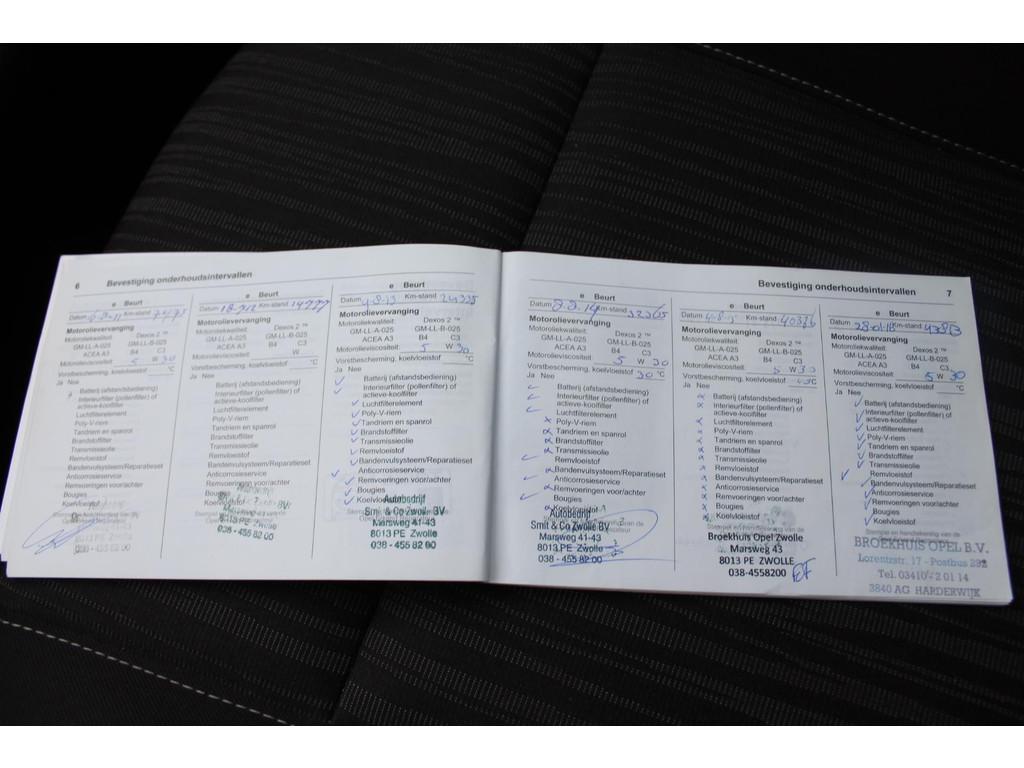 6 Bevestiging onderhoudsintervallen
e Beurt
Datum Km-stand
Motorolievervanging
Motoroliekwaliteit: Dexos 2 ™
GM-LL-A-025 GM-LL-B-025
ACEA A3 B4 C3
Motorolieviscositeit 5 W 30
Vorstbescherming, koelvloeistof °C
Ja Nee
Batterij (afstandsbediening)
Interieurfilter (pollenfilter) of
actieve-koolfilter
Luchtfilterelement
Poly-V-riem
Tandriem en spanrol
Brandstoffilter
Transmissieolie
Remvloeistof
Bandenvulsysteem/Reparatieset
Anticorrosieservice
Remvoeringen voor/achter
Bougies
Koelvloeistof
8013 PE Zwolle
038 - 455 82 00
e Beurt
Datum Km-stand
Motorolievervanging
Motoroliekwaliteit: Dexos 2 ™
GM-LL-A-025 GM-LL-B-025
ACEA A3 B4 C3
Motorolieviscositeit W
Vorstbescherming, koelvloeistof °C
Ja Nee
Batterij (afstandsbediening)
Interieurfilter (pollenfilter) of
actieve-koolfilter
Luchtfilterelement
Poly-V-riem
Tandriem en spanrol
Brandstoffilter
Transmissieolie
Remvloeistof
Bandenvulsysteem/Reparatieset
Anticorrosieservice
Remvoeringen voor/achter
Bougies
Koelvloeistof
8013 PE Zwolle
038 - 455 82 00
e Beurt
Datum 4-8-13 Km-stand 24335
Motorolievervanging
Motoroliekwaliteit: Dexos 2 ™
GM-LL-A-025 GM-LL-B-025
ACEA A3 B4 C3
Motorolieviscositeit 5 W 30
Vorstbescherming, koelvloeistof °C
Ja Nee
Batterij (afstandsbediening)
Interieurfilter (pollenfilter) of
actieve-koolfilter
Luchtfilterelement
Poly-V-riem
Tandriem en spanrol
Brandstoffilter
Transmissieolie
Remvloeistof
Bandenvulsysteem/Reparatieset
Anticorrosieservice
Remvoeringen voor/achter
Bougies
Koelvloeistof
Autobedrijf
Smit & Co Zwolle BV
Marsweg 41-43
8013 PE Zwolle
038 - 455 82 00
Bevestiging onderhoudsintervallen 7
e Beurt
Datum Km-stand
Motorolievervanging
Motoroliekwaliteit: Dexos 2 ™
GM-LL-A-025 GM-LL-B-025
ACEA A3 B4 C3
Motorolieviscositeit 5 W 30
Vorstbescherming, koelvloeistof 30 °C
Ja Nee
Batterij (afstandsbediening)
Interieurfilter (pollenfilter) of
actieve-koolfilter
Luchtfilterelement
Poly-V-riem
Tandriem en spanrol
Brandstoffilter
Transmissieolie
Remvloeistof
Bandenvulsysteem/Reparatieset
Anticorrosieservice
Remvoeringen voor/achter
Bougies
Koelvloeistof
Autobedrijf
Smit & Co Zwolle BV
Marsweg 41-43
8013 PE Zwolle
038 - 455 82 00
e Beurt
Datum Km-stand
Motorolievervanging
Motoroliekwaliteit: Dexos 2 ™
GM-LL-A-025 GM-LL-B-025
ACEA A3 B4 C3
Motorolieviscositeit 5 W 30
Vorstbescherming, koelvloeistof °C
Ja Nee
Batterij (afstandsbediening)
Interieurfilter (pollenfilter) of
actieve-koolfilter
Luchtfilterelement
Poly-V-riem
Tandriem en spanrol
Brandstoffilter
Transmissieolie
Remvloeistof
Bandenvulsysteem/Reparatieset
Anticorrosieservice
Remvoeringen voor/achter
Bougies
Koelvloeistof
Broekhuis Opel Zwolle
Marsweg 43
8013 PE ZWOLLE
038-4558200
e Beurt
Datum 28-01-18 Km-stand
Motorolievervanging
Motoroliekwaliteit: Dexos 2 ™
GM-LL-A-025 GM-LL-B-025
ACEA A3 B4 C3
Motorolieviscositeit 5 W 30
Vorstbescherming, koelvloeistof °C
Ja Nee
Batterij (afstandsbediening)
Interieurfilter (pollenfilter) of
actieve-koolfilter
Luchtfilterelement
Poly-V-riem
Tandriem en spanrol
Brandstoffilter
Transmissieolie
Remvloeistof
Bandenvulsysteem/Reparatieset
Anticorrosieservice
Remvoeringen voor/achter
Bougies
Koelvloeistof
Stempel en handtekening van de
BROEKHUIS OPEL B.V.
Lorentzstr. 17 - Postbus 292
Tel. 03410 - 2 01 14
3840 AG HARDERWIJK